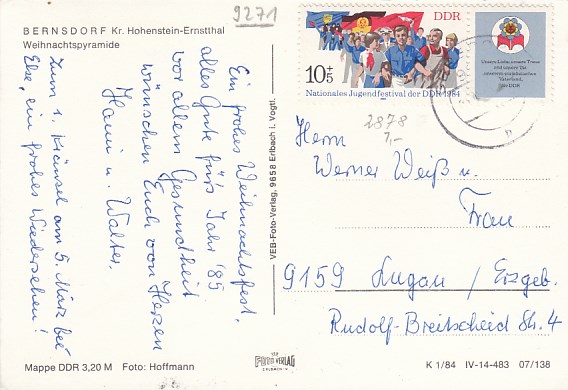 BERNSDORF Kr. Hohenstein-Ernstthal
Weihnachtspyramide
9271
Ein frohes Weihnachtsfest,
alles Gute für's Jahr '85
vor allem Gesundheit
wünschen Euch von Herzen
Hanni u. Walter.
Zum 1. Kränzel am 5. März bei
Else, ein frohes Wiedersehen!
Mappe DDR 3,20 M Foto: Hoffmann
VEB-Foto-Verlag, 9658 Erlbach i. Vogtl.
VEB
FOTO VERLAG
ERLBACH
DDR
10+5
Nationales Jugendfestival der DDR 1984
Unsere Liebe, unsere Treue
und unsere Tat
unserem sozialistischen
Vaterland,
der DDR
2878
7,-
Herrn
Werner Weiß u.
Frau
9159 Lugau / Erzgeb.
Rudolf-Breitscheid Str. 4
K 1/84 IV-14-483 07/138